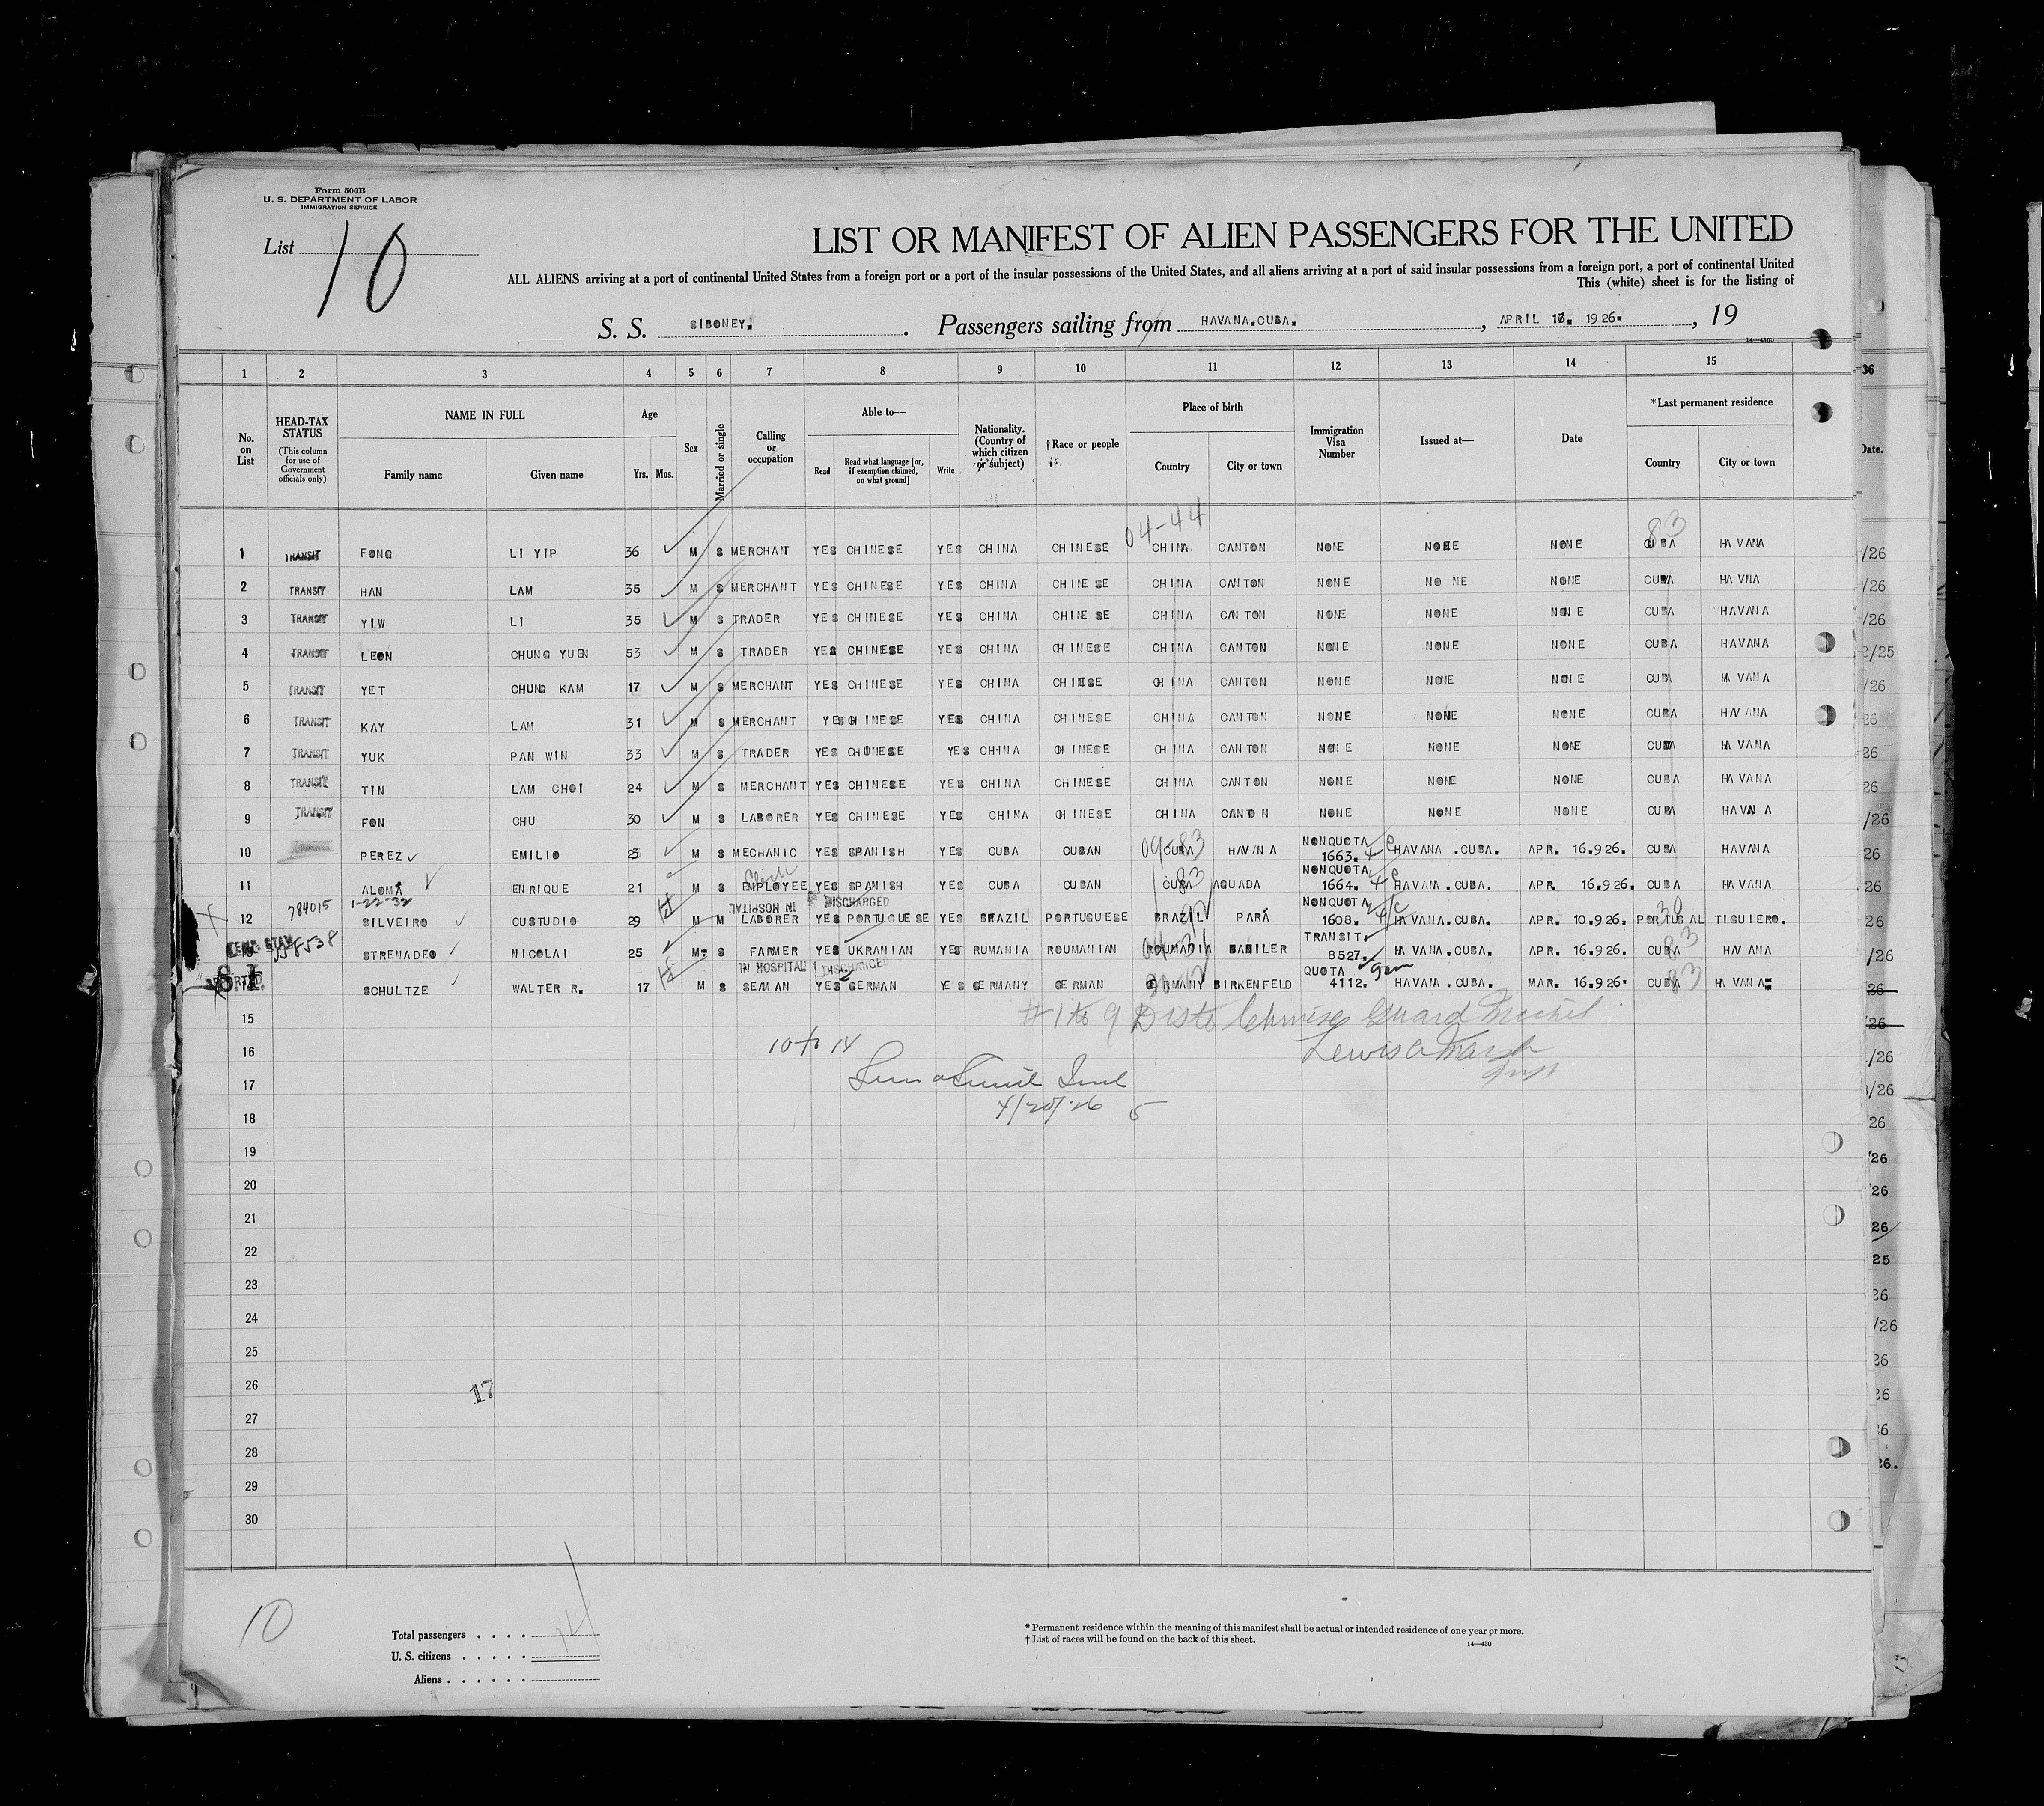 Form 500B
U. S. DEPARTMENT OF LABOR
IMMIGRATION SERVICE
List 10
LIST OR MANIFEST OF ALIEN PASSENGERS FOR THE UNITED
ALL ALIENS arriving at a port of continental United States from a foreign port or a port of the insular possessions of the United States, and all aliens arriving at a port of said insular possessions from a foreign port, a port of continental United
This (white) sheet is for the listing of
S. S. SIBONEY. . Passengers sailing from HAVANA.CUBA. , APRIL 1 . 1926. , 19
14—430
1 2 3 4 5 6 7 8 9 10 11 12 13 14 15 36
No. on List HEAD-TAX STATUS (This column for use of Government officials only) NAME IN FULL Family name Given name Age Yrs. Mos. Sex Married or single Calling or occupation Able to— Read Read what language [or, if exemption claimed, on what ground] Write Nationality. (Country of which citizen or subject) †Race or people Place of birth Country City or town Immigration Visa Number Issued at— Date *Last permanent residence Country City or town Date.
04-44 83
1 TRANSIT FONG LI YIP 36 M S MERCHANT YES CHINESE YES CHINA CHINESE CHINA CANTON NONE NONE NONE CUBA HAVANA /26
2 TRANSIT HAN LAM 35 M S MERCHANT YES CHINESE YES CHINA CHINESE CHINA CANTON NONE NONE NONE CUBA HAVNA /26
3 TRANSIT YIW LI 35 M S TRADER YES CHINESE YES CHINA CHINESE CHINA CANTON NONE NONE NONE CUBA HAVANA /26
4 TRANSIT LEON CHUNG YUEN 53 M S TRADER YES CHINESE YES CHINA CHINESE CHINA CANTON NONE NONE NONE CUBA HAVANA 2/25
5 TRANSIT YET CHUNG KAM 17 M S MERCHANT YES CHINESE YES CHINA CHIESE CHINA CANTON NONE NONE NONE CUBA HAVANA /26
6 TRANSIT KAY LAM 31 M S MERCHANT YES CHINESE YES CHINA CHINESE CHINA CANTON NONE NONE NONE CUBA HAVANA 26
7 TRANSIT YUK PAN WIN 33 M S TRADER YES CHINESE YES CHINA CHINESE CHINA CANTON NONE NONE NONE CUBA HAVANA 26
8 TRANSIT TIN LAM CHOI 24 M S MERCHANT YES CHINESE YES CHINA CHINESE CHINA CANTON NONE NONE NONE CUBA HAVANA 26
9 TRANSIT FON CHU 30 M S LABORER YES CHINESE YES CHINA CHINESE CHINA CANTON NONE NONE NONE CUBA HAVANA /26
10 TRANSIT PEREZ EMILIO 25 M S MECHANIC YES SPANISH YES CUBA CUBAN CUBA HAVANA NONQUOTA 1663. HAVANA.CUBA. APR. 16.926. CUBA HAVANA 26
11 ALOMA ENRIQUE 21 M S Clerk EMPLOYEE YES SPANISH YES CUBA CUBAN CUBA 83 AGUADA NONQUOTA 1664. HAVANA.CUBA. APR. 16.926. CUBA HAVANA 26
784015 1-22-32 IN HOSPITAL DISCHARGED
12 SILVEIRO CUSTUDIO 29 M M LABORER YES PORTUGUESE YES BRAZIL PORTUGUESE BRAZIL PARÁ NONQUOTA 1608. HAVANA.CUBA. APR. 10.926. PORTUGAL 30 TIGUIERO. 26
STRENADEO NICOLAI 25 M S FARMER YES UKRANIAN YES RUMANIA ROUMANIAN ROUMANIA BANILER TRANSIT 8527. HAVANA.CUBA. APR. 16.926. CUBA 83 HAVANA /26
IN HOSPITAL DISCHARGED
S.I. SCHULTZE WALTER R. 17 M S SEAMAN YES GERMAN YES GERMANY GERMAN GERMANY BIRKENFELD QUOTA 4112. HAVANA.CUBA. MAR. 16.926. CUBA 83 HAVANA 26
15 # 1 to 9 Chinese Guard
16 10 to 14 Lewis
17
18 4/20/26 5
19
20
21
22
23
24
25
26 17
27
28
29
30
10
Total passengers . . . . 14
U. S. citizens . . . . .
Aliens . . . . . .
* Permanent residence within the meaning of this manifest shall be actual or intended residence of one year or more.
† List of races will be found on the back of this sheet.
14—430